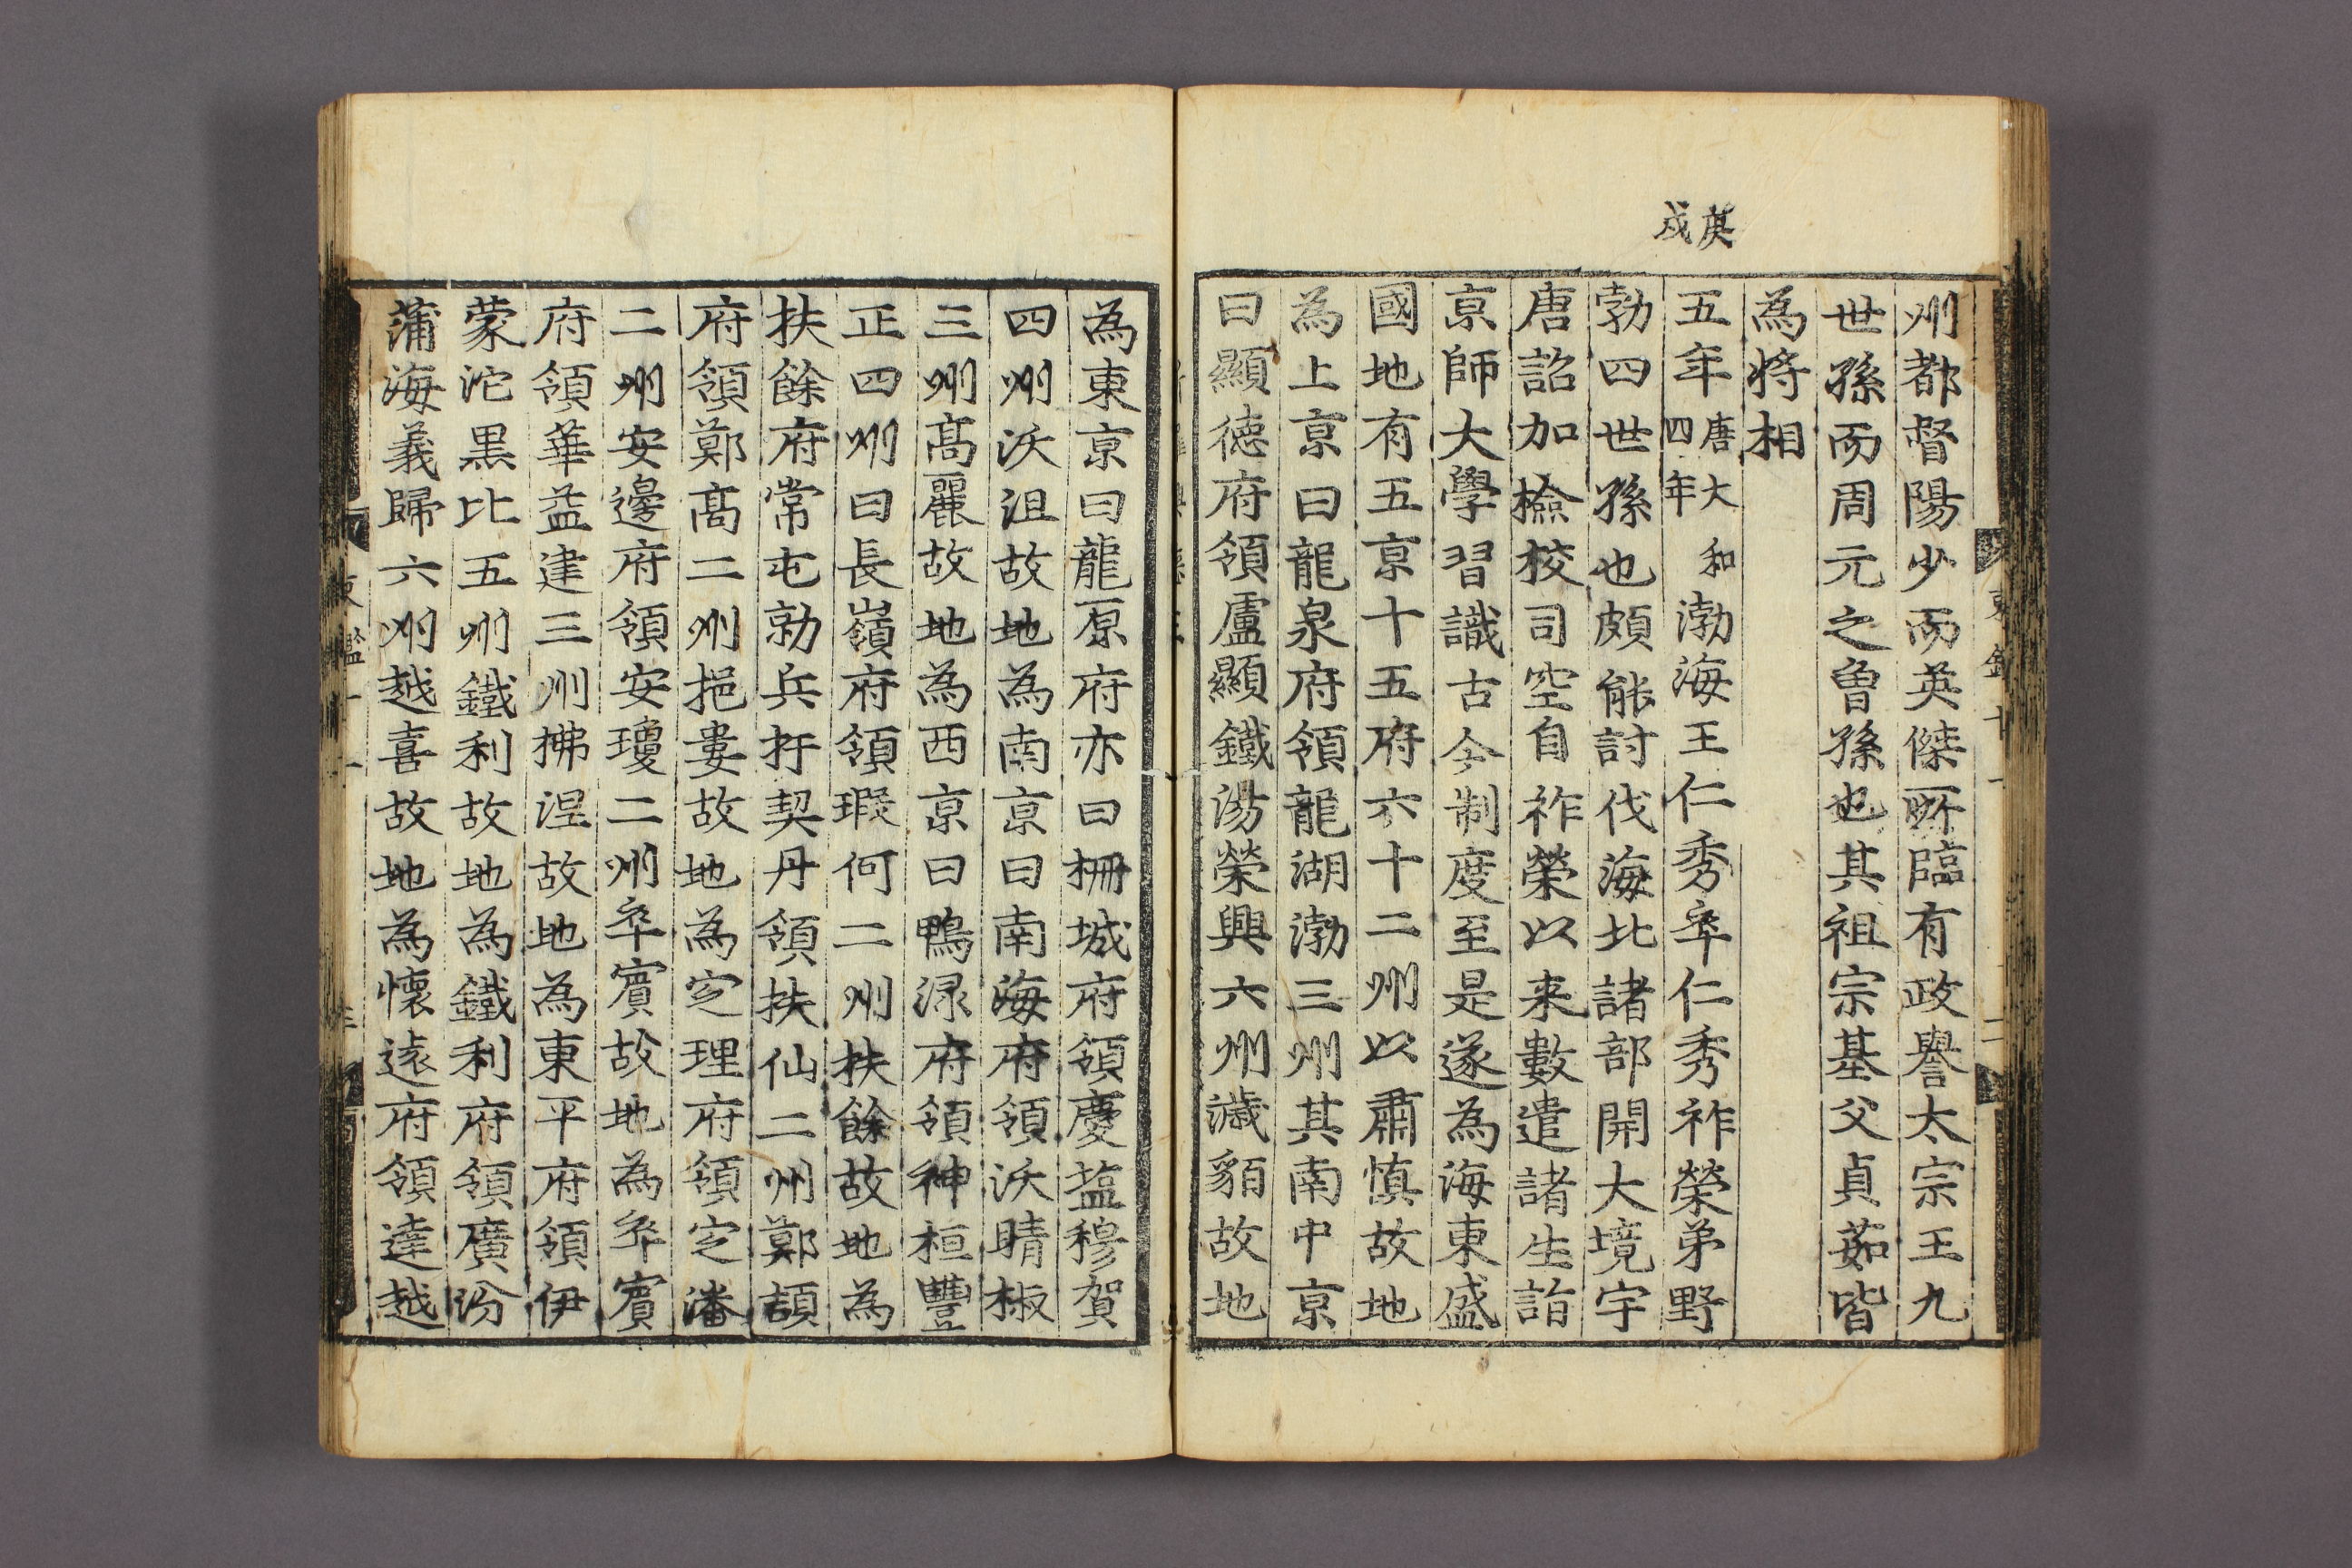 庚戌
州都督陽少而英傑所臨有政譽太宗王九
世孫而周元之曾孫也其祖宗基父貞茹皆
為將相
五年唐大和四年渤海王仁秀卒仁秀祚榮弟野
勃四世孫也頗能討伐海北諸部開大境宇
唐詔加檢校司空自祚榮以来數遣諸生詣
京師大學習識古今制度至是遂為海東盛
國地有五京十五府六十二州以肅慎故地
為上京曰龍泉府領龍湖渤三州其南中京
曰顯德府領盧顯鐵湯榮興六州濊貊故地
為東京曰龍原府亦曰柵城府領慶塩穆賀
四州沃沮故地為南京曰南海府領沃睛椒
三州高麗故地為西京曰鴨淥府領神桓豐
正四州曰長嶺府領瑕何二州扶餘故地為
扶餘府常屯勍兵扞契丹領扶仙二州鄭頡
府領鄭高二州挹婁故地為定理府領定潘
二州安邊府領安瓊二州卒賓故地為卒賓
府領華益建三州拂涅故地為東平府領伊
蒙沱黒比五州鐵利故地為鐵利府領廣汾
蒲海義歸六州越喜故地為懷遠府領達越
東鑑十一